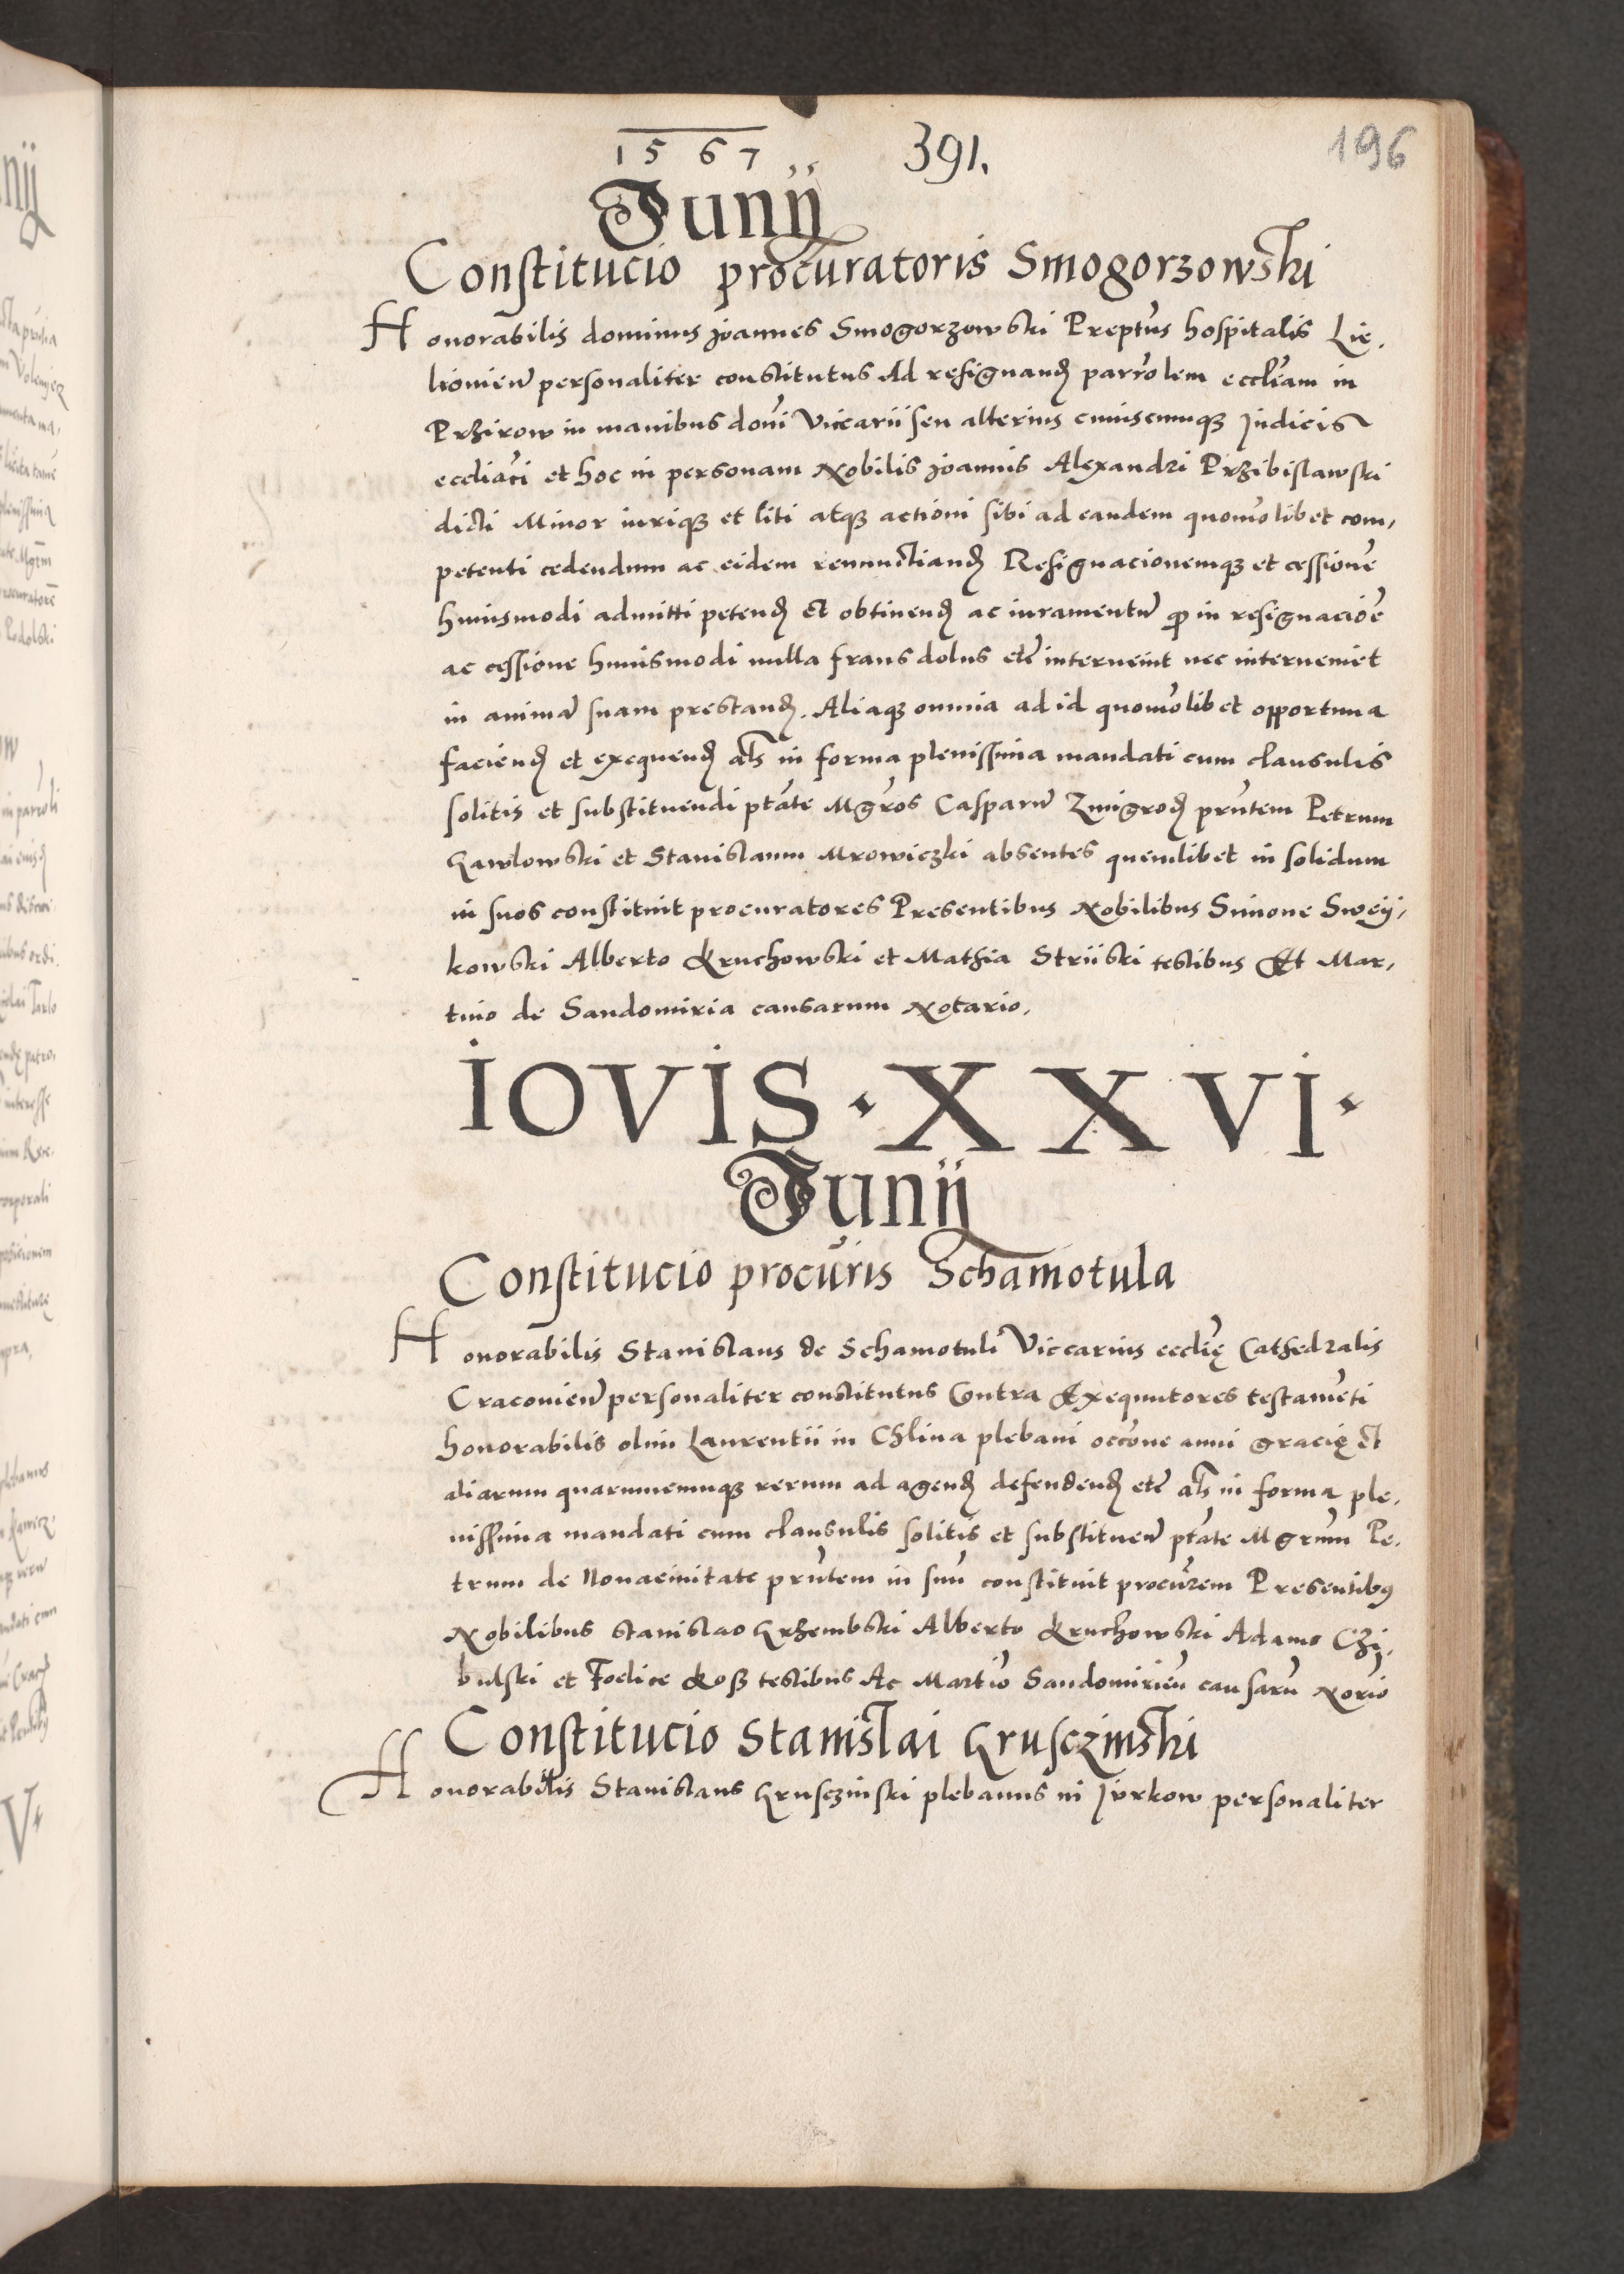 1567 391. 196
Junij
Constitucio procuratoris Smogorzowski
Honorabilis dominus Joannes Smogorzowski Preptus hospitalis Lię,
lionien personaliter constitutus Ad resignand parrolem eccliam in
Przirow in manibus domi Viccarii seu alterius cuiuscumque Judicis
eccliaci et hoc in personam Nobilis Joannis Alexandri Przibislawski
dicti Minor iurique et liti atque actioni sibi ad eandem quomolibet com,
petenti cedendum ac eidem renunctiand Resignacionemque et cessione
huiusmodi admitti petend et obtinend ac iuramentum quod in resignacioe
ac cessione huiusmodi nulla fraus dolus etc interueint nec interueniet
in animam suam prestand. Aliaque omnia ad id quomolibet opportuna
faciend et exequend als in forma plenissima mandati cum clausulis
solitis et substituendi ptate Mgros Casparum Zmigrod prntem Petrum
Gawlowski et Stanislaum Mrowiczki absentes quemlibet in solidum
in suos constituit procuratores Presentibus Nobilibus Simone Sweij,
kowski Alberto Kruchowski et Mathia Striiski testibus Et Mar,
tino de Sandomiria causarum Notario.
IOVIS · XXVI ·
Junij
Constitucio procuris Schamotula
Honorabilis Stanislaus de Schamotuli Viccarius ecclię Cathedralis
Cracovien personaliter constitutus Contra Exequutores testameti
honorabilis olim Laurentii in Chlina plebani occone anni gracię et
aliarum quarumcumque rerum ad agend defendend etc als in forma ple,
nissima mandati cum clausulis solitis et substituen ptate Mgrum Pe,
trum de Nouaciuitate prntem in suu constituit procurem Presentibus
Nobilibus Stanislao Grzembski Alberto Kruchowski Adamo Czi,
bulski et Foelice Kosz testibus Ac Martio Sandomirien causaru Norio
Constitucio Stanislai Grusczinski
Honorabilis Stanislaus Grusczinski plebanus in Jurkow personaliter